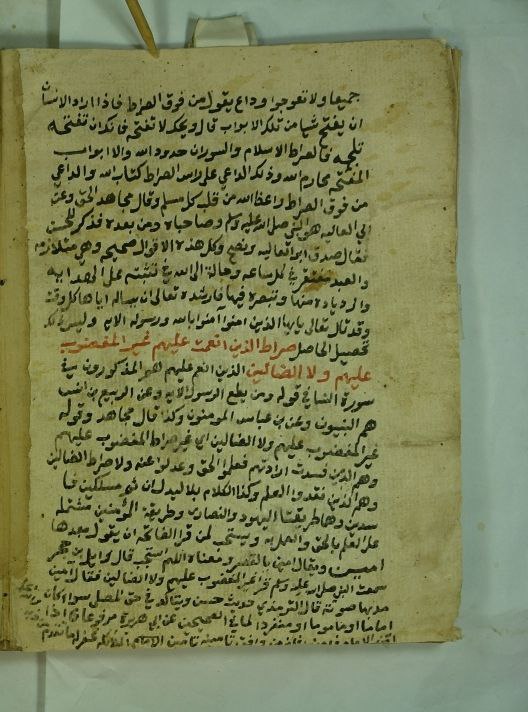 جميعا ولا تعوجوا وداع يقول من فوق الصراط فاذا اراد الانسان
ان يفتح شيا من تلك الابواب قال ويحك لا تفتحه فانك ان تفتحه
تلجه فالصراط الاسلام والسوران حدود الله والابواب
المفتحة محارم الله وذلك الداعي على راس الصراط كتاب الله والداعي
من فوق الصراط واعظ الله من قلب كل مسلم وقال مجاهد الحق وعن
ابي العاليه هو النبي صلى الله عليه وسلم وصاحباه من بعده فذكر للحسن
فقال صدق ابو العاليه ونصح وكل هذه الاقوال صحيحه وهي متلازمه
والعبد مفتقر في كل ساعه وحالة الى الله في تثبيته على الهدايه
وازدياده منها وتبصره فيها فارشده تعالى ان يساله اياها كل وقت
وقد قال تعالى يايها الذين امنوا امنوا بالله ورسوله الايه وليس ذلك
تحصيل الحاصل صراط الذين انعمت عليهم غير المغضوب
عليهم ولا الضالين الذين انعم عليهم هم المذكورون في
سورة النسا في قوله ومن يطع الرسول الايه وعن الربيع بن انس
هم النبيون وعن بن عباس المومنون وكذا قال مجاهد وقوله
غير المغضوب عليهم ولا الضالين اي غير صراط المغضوب عليهم
وهم الذين فسدت ارادتهم فعلموا الحق وعدلوا عنه ولا صراط الضالين
وهم الذين فقدوا العلم وكذا الكلام بلا ليدل ان ثم مسلكين فا
سدين وهما طريقتا اليهود والنصارى وطريقة المؤمنين مشتمله
على العلم بالحق والعمل به ويستحب لمن قرا الفاتحة ان يقول بعدها
امين ويقال امين بالقصر ومعناه اللهم استجب قال وايل بن حجر
سمعت النبي صلى الله عليه وسلم قرا غير المغضوب عليهم ولا الضالين فقال امين
مد بها صوته قال الترمذي حديث حسن ويتاكد في حق المصلي سوا كان
اماما او ماموما او منفردا لما في الصحيحين عن ابي هريرة مرفوعا اذا
امن الامام فامنوا فانه من وافق تامينه تامين الملائكة غفر له ما تقدم